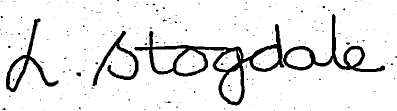 L. Stogdale